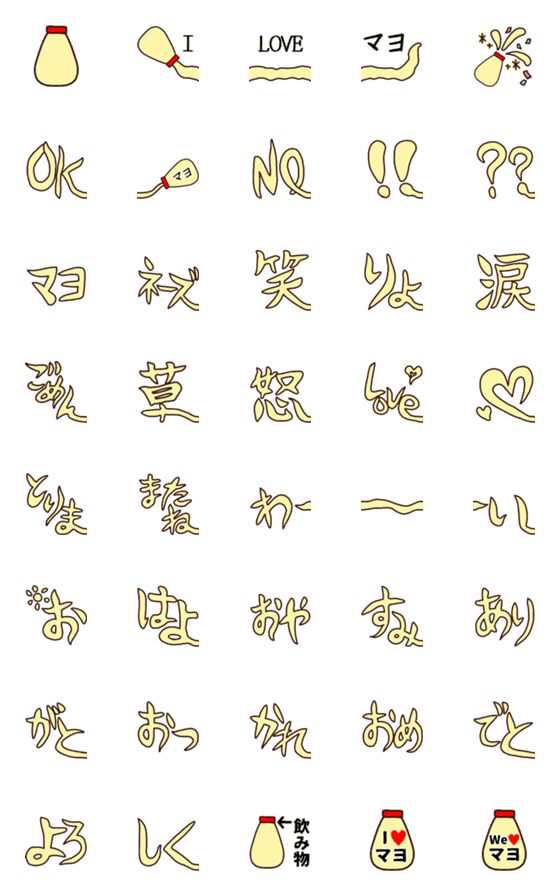 I LOVE マヨ
OK マヨ NO !! ??
マヨ ネーズ 笑 りょ 涙
ごめん 草 怒 Love
とりま またね わー いし
お はよ おや すみ あり
がと おつ かれ おめ でと
よろ しく ←飲み物 I マヨ We マヨ